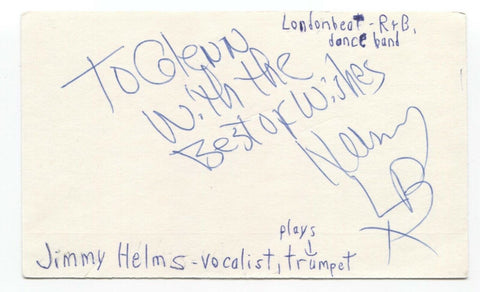 Londonbeat - R+B,
dance band
To Glenn
With the
Best of Wishes
LB
X
plays
Jimmy Helms - vocalist, trumpet